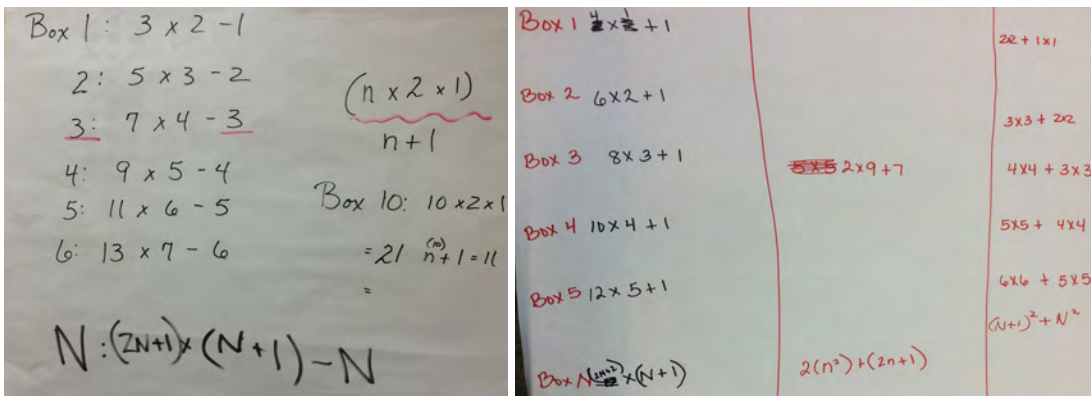 Box 1: 3 x 2 - 1
2: 5 x 3 - 2
3: 7 x 4 - 3
4: 9 x 5 - 4
5: 11 x 6 - 5
6: 13 x 7 - 6
N: (2N+1) x (N+1) - N
(n x 2 x 1)
n + 1
Box 10: 10 x 2 x 1
= 21 (10) n + 1 = 11
=
Box 1 4 x 1 + 1
Box 2 6 x 2 + 1
Box 3 8 x 3 + 1
Box 4 10 x 4 + 1
Box 5 12 x 5 + 1
Box N (2N+2) x (N+1)
5x5 2 x 9 + 7
2(n²) + (2n+1)
2x2 + 1x1
3x3 + 2x2
4x4 + 3x3
5x5 + 4x4
6x6 + 5x5
(N+1)² + N²